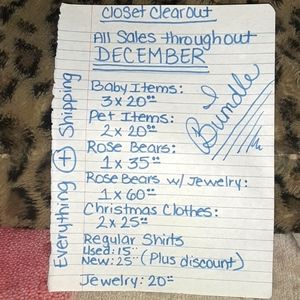 Closet Clearout
All Sales throughout
DECEMBER
Baby Items:
3 x 20⁰⁰
Pet Items:
2 x 20⁰⁰
Rose Bears:
1 x 35⁰⁰
Rose Bears w/ Jewelry:
1 x 60⁰⁰
Christmas Clothes:
2 x 25⁰⁰
Regular Shirts
Used: 15⁰⁰
New: 25⁰⁰ (Plus discount)
Jewelry: 20⁰⁰
Everything + Shipping
Bundle